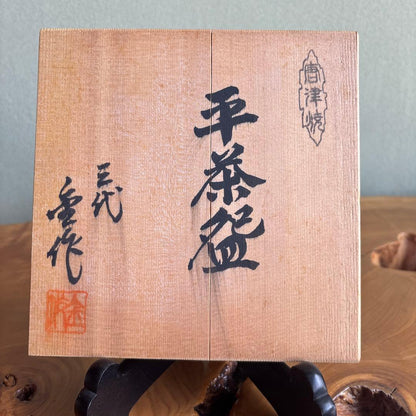 唐津焼
平茶盌
三代
作